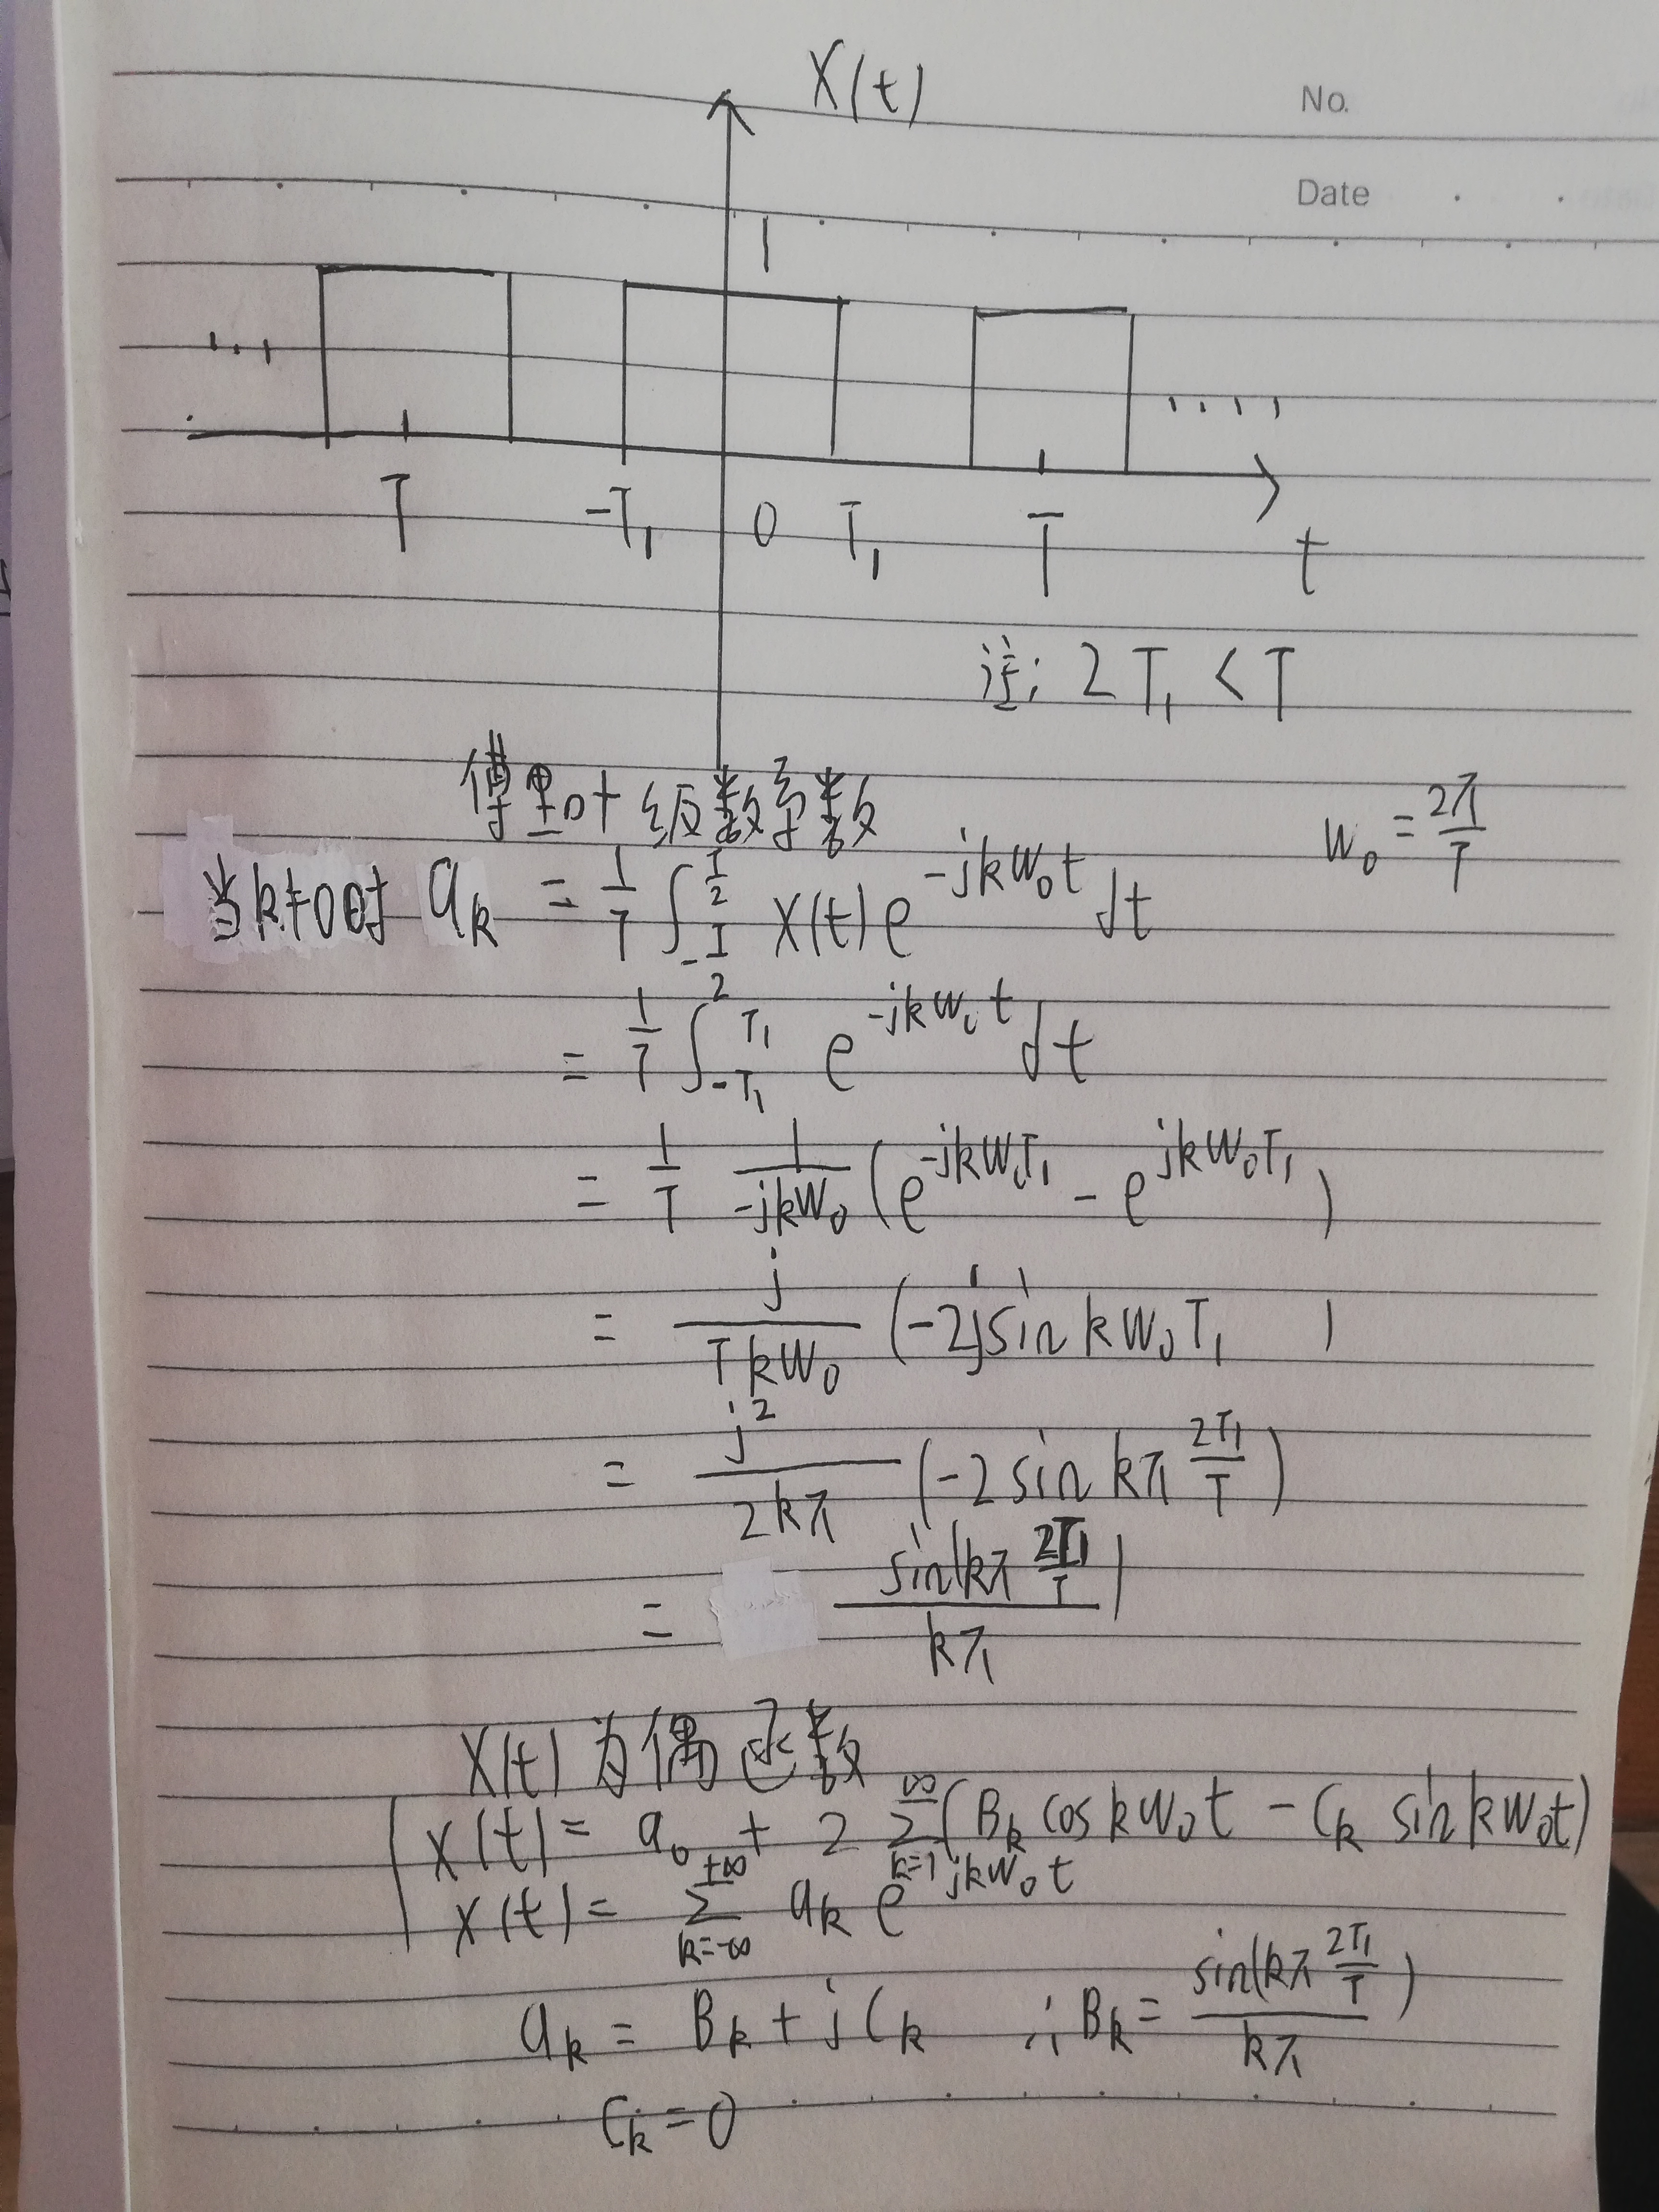 X(t)
No.
Date
1
T -T₁ 0 T₁ T t
注: 2T₁ < T
傅里叶级数系数 W₀ = 2π/T
当k≠0时 aₖ = 1/T ∫_{-T/2}^{T/2} x(t) e^{-jkW₀t} dt
= 1/T ∫_{-T₁}^{T₁} e^{-jkW₀t} dt
= 1/T 1/(-jkW₀) (e^{-jkW₀T₁} - e^{jkW₀T₁})
= j/(TkW₀) (-2jsin kW₀T₁)
= j²/(2kπ) (-2 sin kπ 2T₁/T)
= sin(kπ 2T₁/T)/kπ
X(t)为偶函数
x(t) = a₀ + 2 Σ_{k=1}^{∞} (Bₖ cos kW₀t - Cₖ sin kW₀t)
x(t) = Σ_{k=-∞}^{+∞} aₖ e^{jkW₀t}
aₖ = Bₖ + jCₖ ∴ Bₖ = sin(kπ 2T₁/T)/kπ
Cₖ = 0